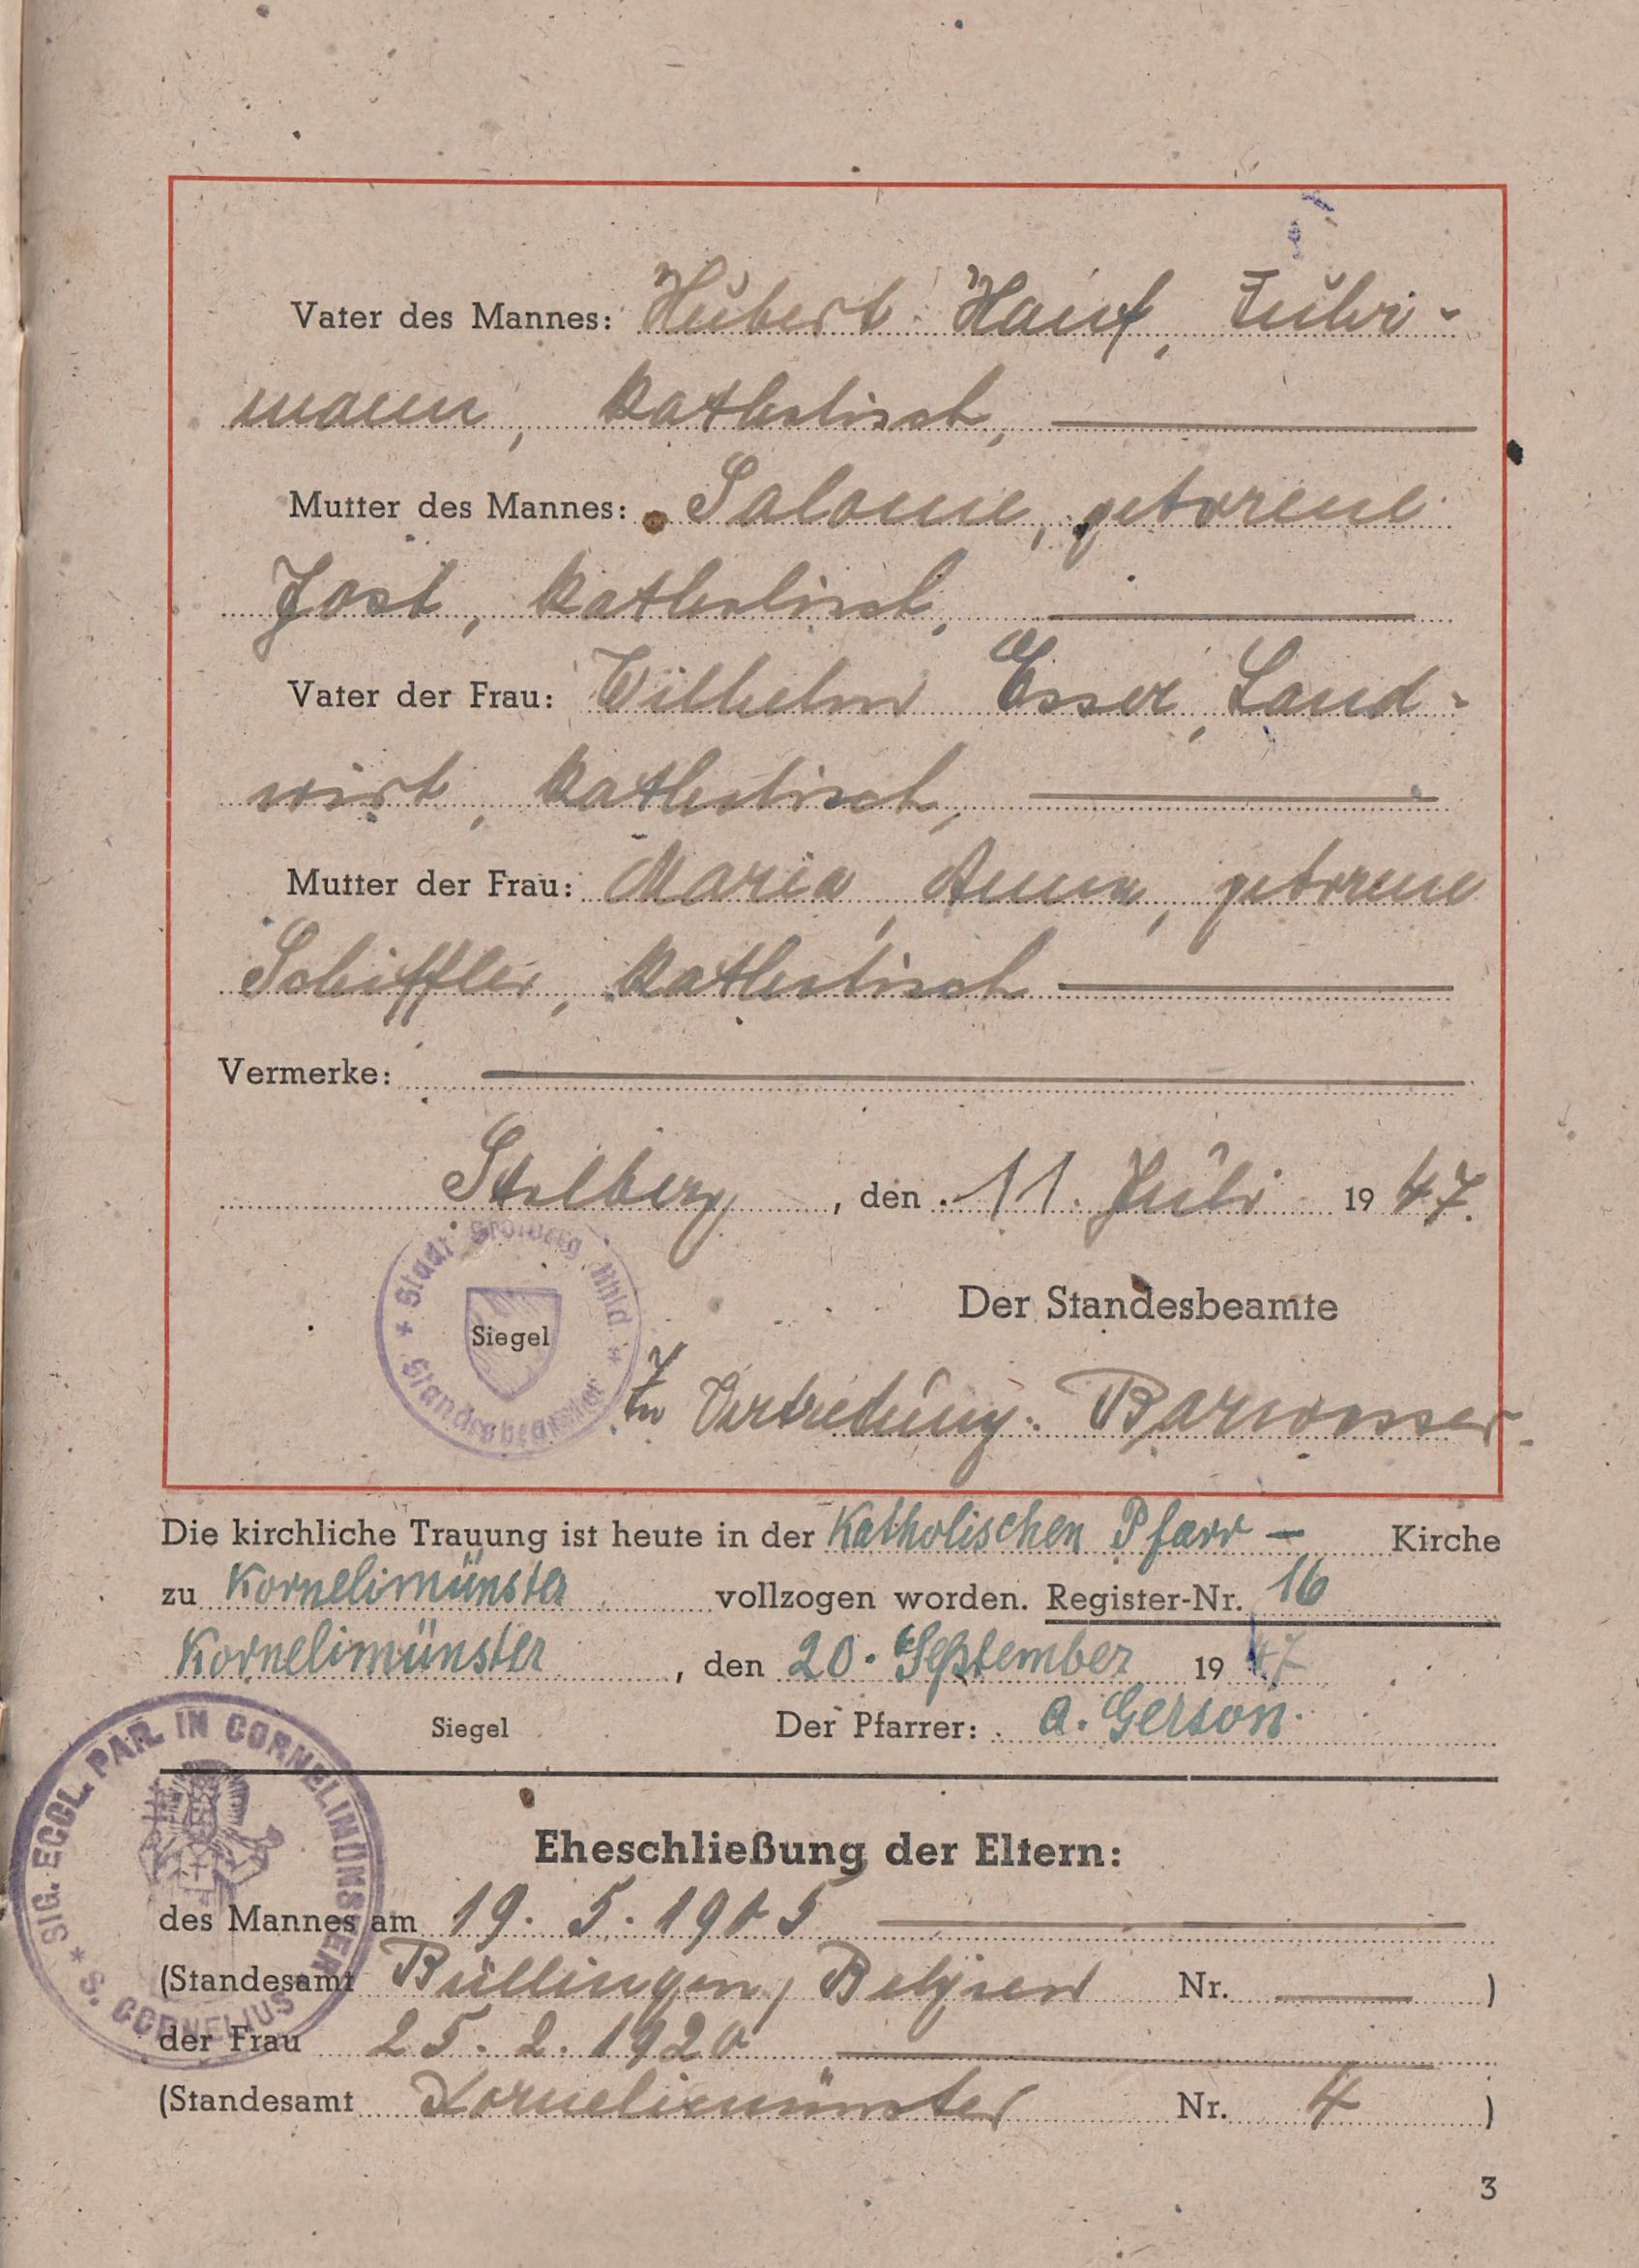 Vater des Mannes: Hubert Hauf, Fuhr-
mann, katholisch,
Mutter des Mannes: Salome, geborene
Jost, katholisch,
Vater der Frau: Wilhelm Esser, Land-
wirt, katholisch,
Mutter der Frau: Maria, Anna, geborene
Schiffler, katholisch
Vermerke:
Stolberg, den 11. Juli 1947.
Stadt Stolberg Rhld.
Siegel
Standesregister
Der Standesbeamte
In Vertretung: Barwasser
Die kirchliche Trauung ist heute in der Katholischen Pfarr- Kirche
zu Kornelimünster vollzogen worden. Register-Nr. 16
Kornelimünster, den 20. September 1947
Siegel Der Pfarrer: A. Gerson
SIG. ECCL. PAR. IN CORNELIMÜNSTER * S. CORNELIUS *
Eheschließung der Eltern:
des Mannes am 19. 5. 1905
(Standesamt Büllingen, Belgien Nr. )
der Frau 25. 2. 1920
(Standesamt Kornelimünster Nr. 4 )
3